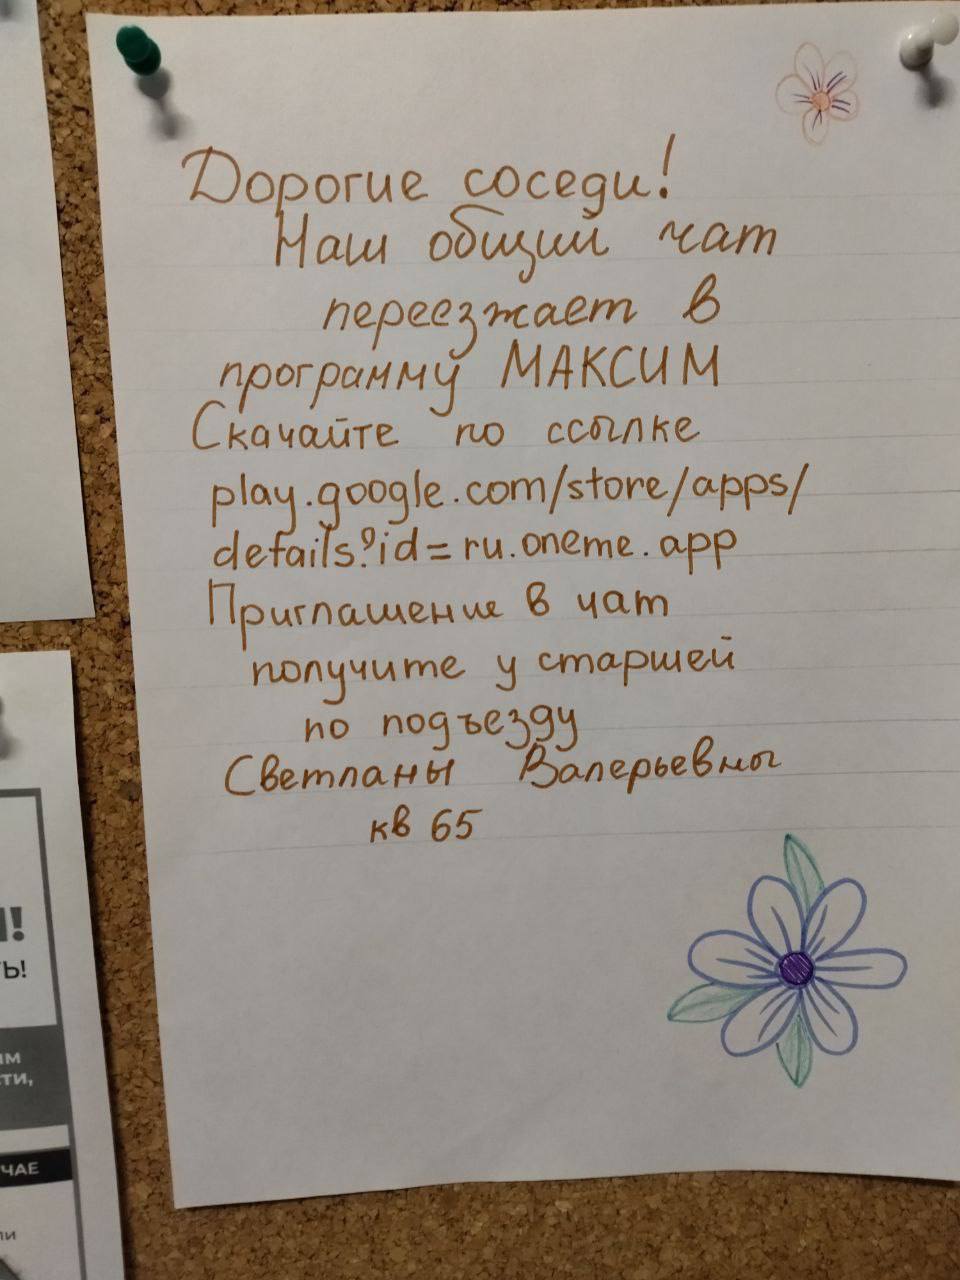 Дорогие соседи!
Наш общий чат
переезжает в
программу МАКСИМ
Скачайте по ссылке
play.google.com/store/apps/
details?id=ru.oneme.app
Приглашение в чат
получите у старшей
по подъезду
Светланы Валерьевны
кв 65
!
ТЬ!
ЧАЕ